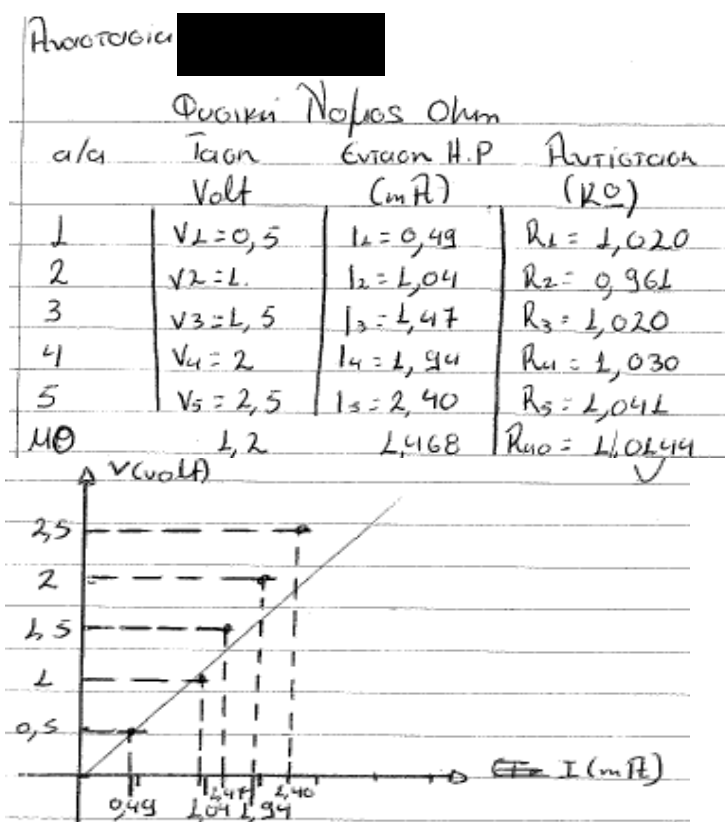 Αναστασία
Φυσική Νόμος Ohm
α/α Τάση Ένταση Η.Ρ Αντίσταση
Volt (mA) (KΩ)
1 V1=0,5 I1=0,49 R1=1,020
2 V2=1. I2=1,04 R2=0,961
3 V3=1,5 I3=1,47 R3=1,020
4 V4=2 I4=1,94 R4=1,030
5 V5=2,5 I5=2,40 R5=1,041
ΜΘ 1,2 1,468 Rμο=1,0144
V(volt)
2,5
2
1,5
1
0,5
0,49 1,04 1,47 1,94 2,40 I(mA)